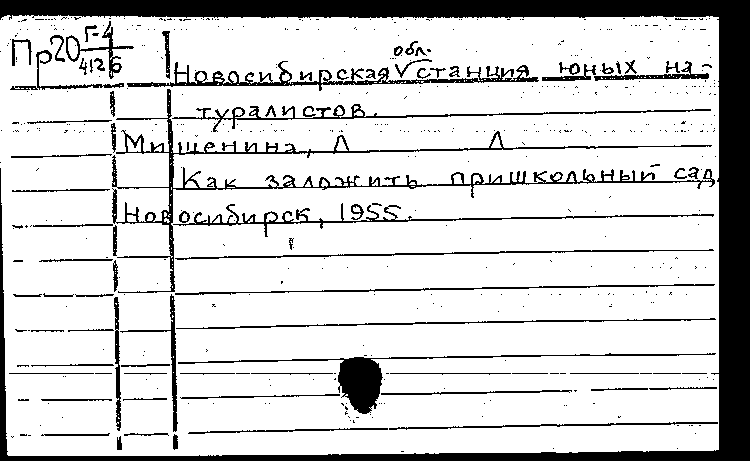 Пр20 Г-4
412б
обл.
Новосибирская √ станция юных на-
туралистов.
Мишенина, Л Л
Как заложить пришкольный сад.
Новосибирск, 1955.